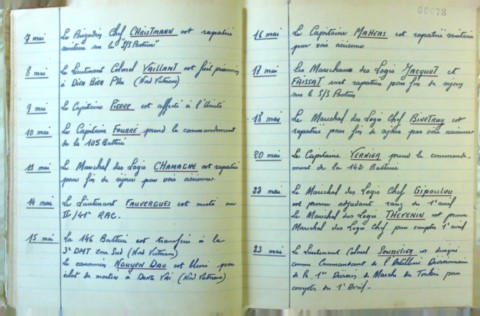 7 mai Le Brigadier Chef CHRISTMANN est rapatrié
sanitaire sur le S/S Pasteur"
8 mai Le Lieutenant Colonel VAILLANT est fait prisonnier
à Dien Bien Phu (Nord Vietnam)
9 mai Le Capitaine PIERRE est affecté à l'Unité
10 mai Le Capitaine FOURRÉ prend le commandement
de la 105 Batterie
13 mai Le Maréchal des Logis CHAMAGNE est rapatrié
pour fin de séjour par voie aérienne
14 mai Le Lieutenant FAUVERGUES est muté au
/41° RAC.
15 mai La 146 Batterie est transférée à la
3° DMT (Nord Vietnam)
Le canonnier NGUYEN DAU est blessé par
éclat de mortier à (Nord Vietnam)
00078
16 mai Le Capitaine est rapatrié sanitaire
par voie aérienne
17 mai Les Marechaux des Logis JACQUOT et
FAISSAT sont rapatriés pour fin de séjour
sur le S/S Pasteur
18 mai Le Marechal des Logis Chef est
rapatrié pour fin de séjour par voie aérienne
20 mai Le Capitaine VERNIER prend le commande-
ment de la 142 Batterie
22 mai Le Marechal des Logis Chef GIPOULOU
est promu adjudant rang du 1° avril
Le Marechal des Logis THEVENIN est promu
Marechal des Logis Chef pour compter 1° avril
23 mai Le Lieutenant Colonel est désigné
comme Commandant de l'Artillerie Divisionnaire
de la 1° Division de Marche du Tonkin pour
compter du 1° Avril.